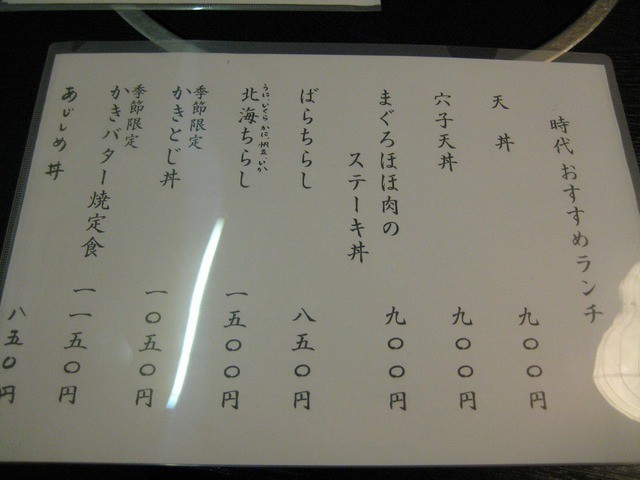 時代おすすめランチ
天丼 九〇〇円
穴子天丼 九〇〇円
まぐろほほ肉の
ステーキ丼 九〇〇円
ばらちらし 八五〇円
うに、いくら、かに、帆立、いか
北海ちらし 一五〇〇円
季節限定
かきとじ丼 一〇五〇円
季節限定
かきバター焼定食 一一五〇円
あじしめ丼 八五〇円